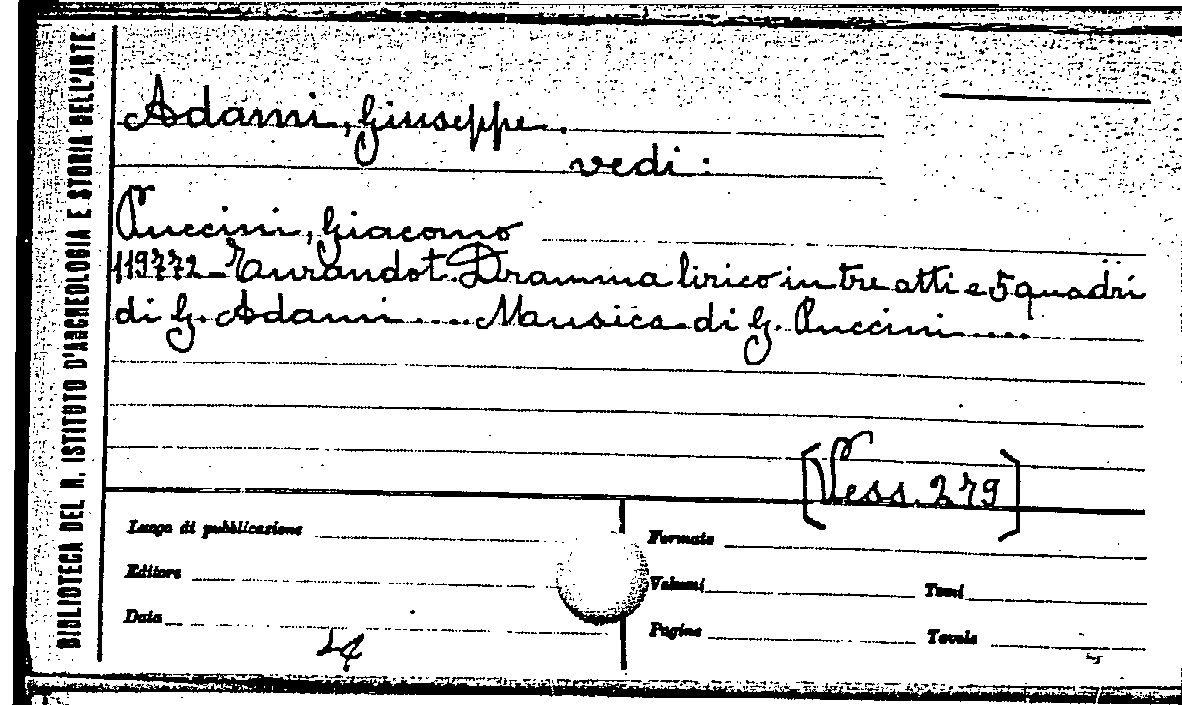 BIBLIOTECA DEL R. ISTITUTO D'ARCHEOLOGIA E STORIA DELL'ARTE
Adami, Giuseppe.
vedi:
Puccini, Giacomo
119772 - Turandot. Dramma lirico in tre atti e 5 quadri
di G. Adami.... Musica di G. Puccini....
[Vess. 279]
Luogo di pubblicazione
Formato
Editore
Volumi
Tomi
Data
Pagine
Tavole